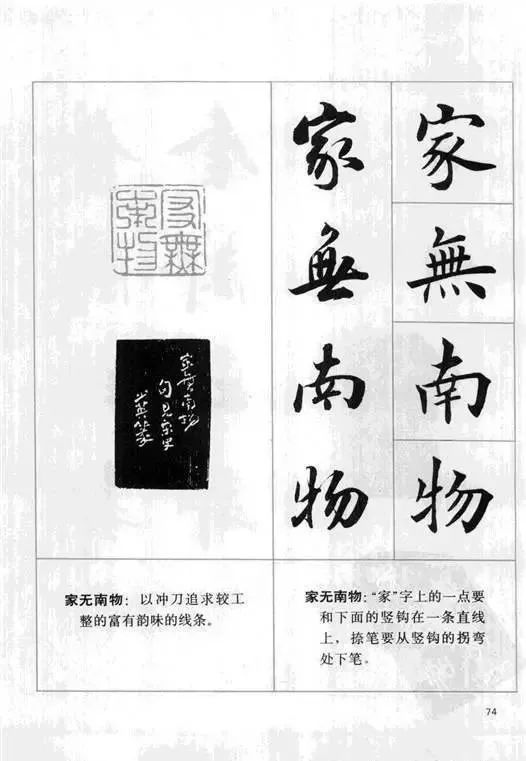 家無南物
家無南物
家無南物
家無南物
句見宋史
英篆
家无南物：以冲刀追求较工
整的富有韵味的线条。
家无南物：“家”字上的一点要
和下面的竖钩在一条直线
上，捺笔要从竖钩的拐弯
处下笔。
74